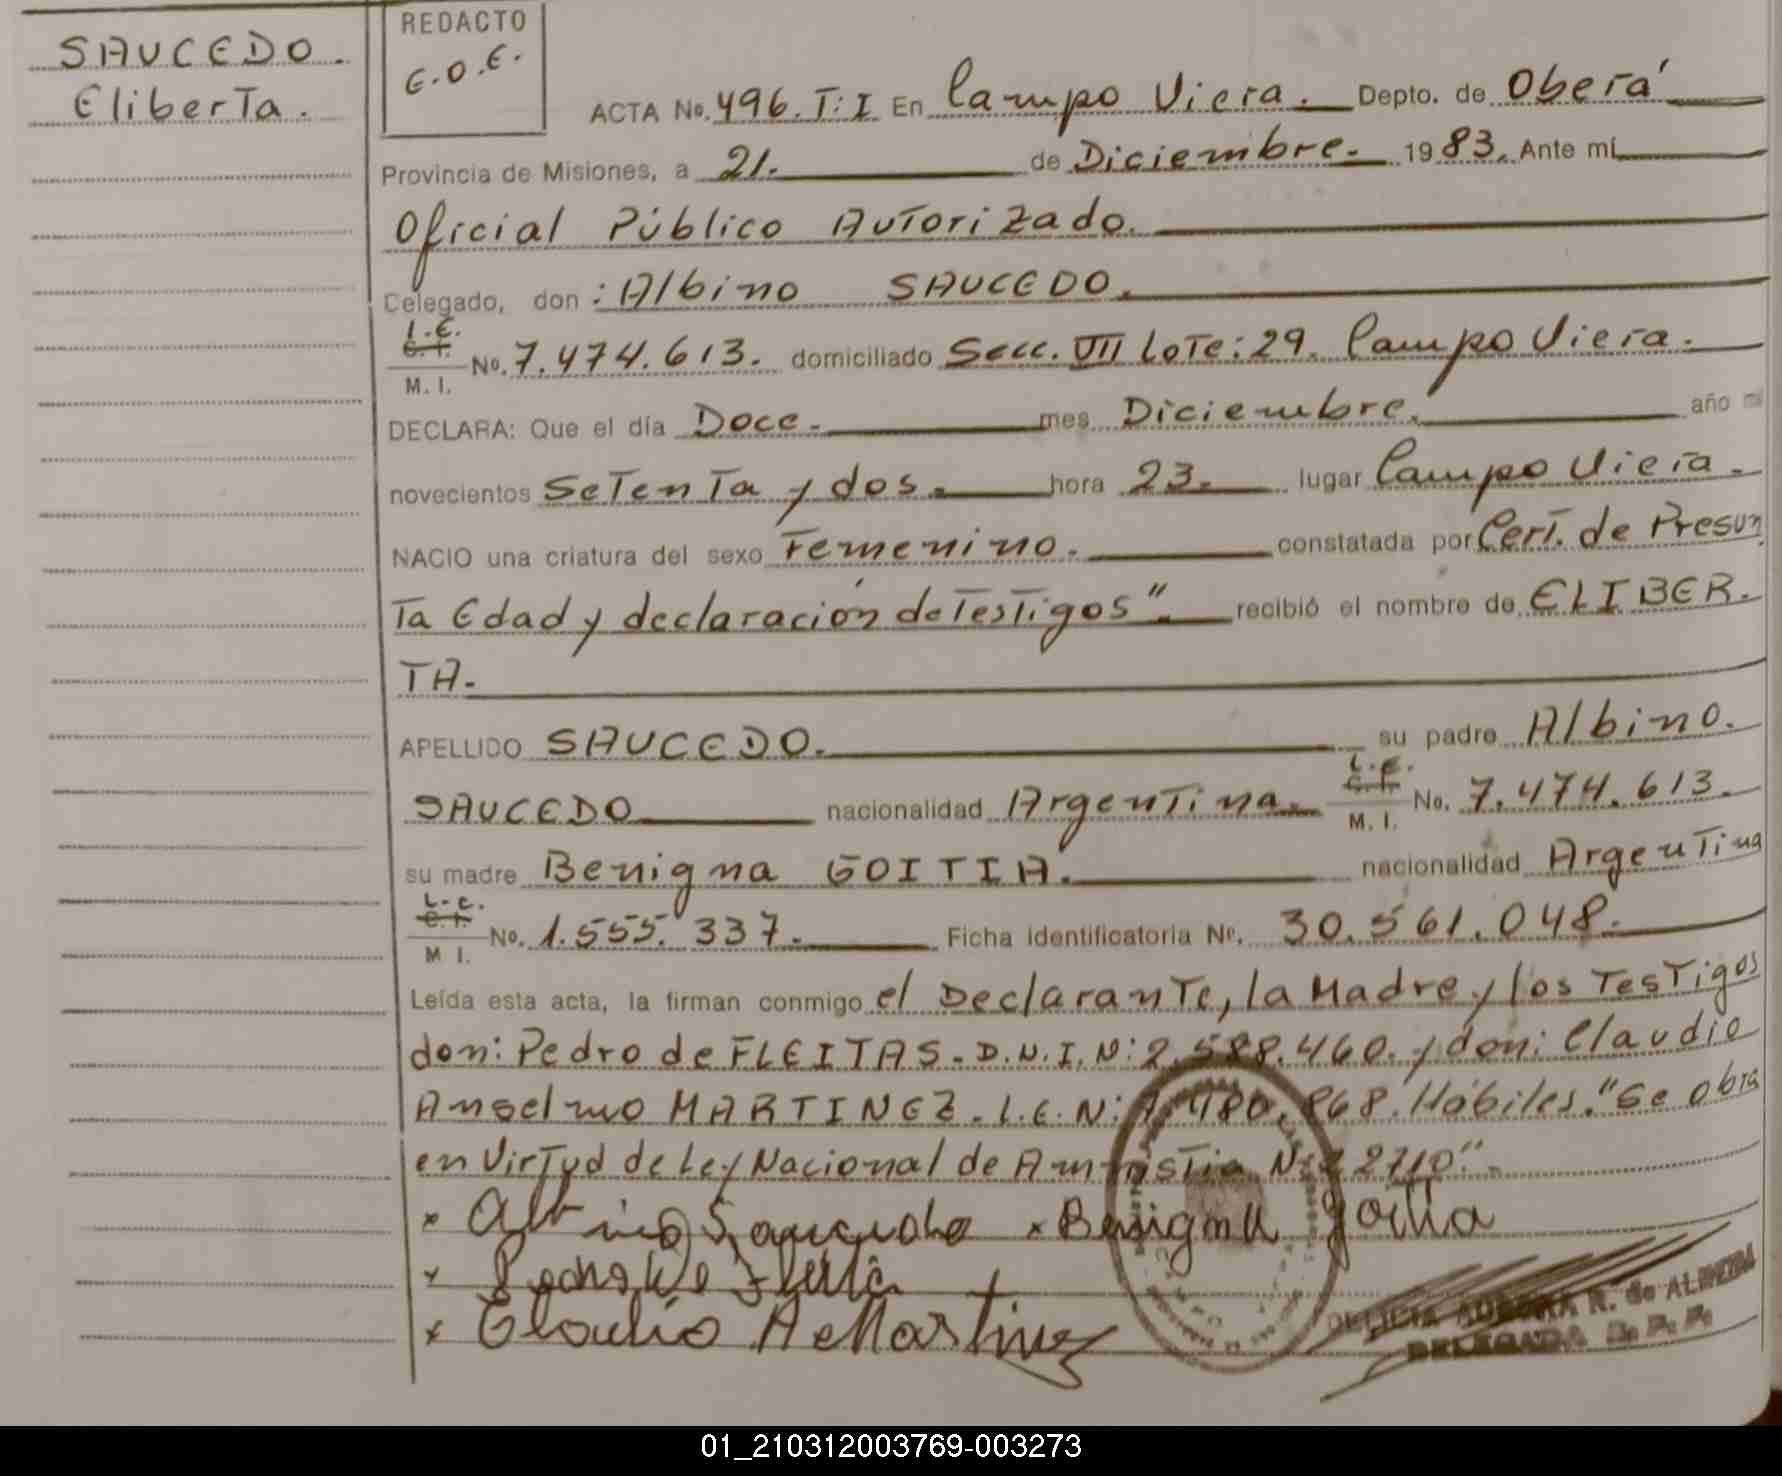 SAUCEDO.
Eliberta.
REDACTO
E.O.E.
ACTA No. 496.T:I En Campo Viera. Depto. de Oberá
Provincia de Misiones, a 21. de Diciembre. 1983. Ante mí
Oficial Público Autorizado.
Celegado, don : Albino SAUCEDO.
L.E.
C. I.
M. I.
No. 7.474.613. domiciliado Secc. VII Lote: 29. Campo Viera.
DECLARA: Que el día Doce. mes Diciembre. año mi
novecientos Setenta y dos. hora 23. lugar Campo Viera.
NACIO una criatura del sexo Femenino. constatada por Cert. de Presun
ta Edad y declaración de Testigos". recibió el nombre de ELIBER.
TA.
APELLIDO SAUCEDO. su padre Albino.
SAUCEDO nacionalidad Argentina. L.E. C. I. M. I. No. 7.474.613.
su madre Benigna GOITIA. nacionalidad Argentina
L.C.
C. I.
M I.
No. 1.555.337. Ficha identificatoria Nº. 30.561.048.
Leída esta acta, la firman conmigo el Declarante, la Madre y los Testigos
don: Pedro de FLEITAS. D.N.I. N: 2.588.460. y don: Claudio
Anselmo MARTINEZ. L.E. N: 480.868. Hábiles. "Se obra
en Virtud de Ley Nacional de Amnistia N: 22710".
x Albino Saucedo x Benigna Goitia
x Pedro de Fleita
x Claudio A Martinez
DELICIA AURORA R. de ALMEIDA
DELEGADA R. P. P.
01_210312003769-003273